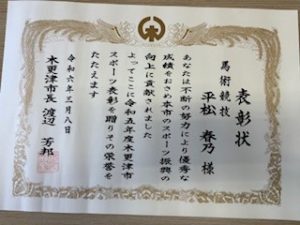 表彰状
馬術競技
平松 春乃 様
あなたは不断の努力により優秀な
成績をおさめ本市のスポーツ振興の
向上に貢献されました
よってここに令和五年度木更津市
スポーツ表彰を贈りその栄誉を
たたえます
令和六年三月八日
木更津市長 渡辺 芳邦